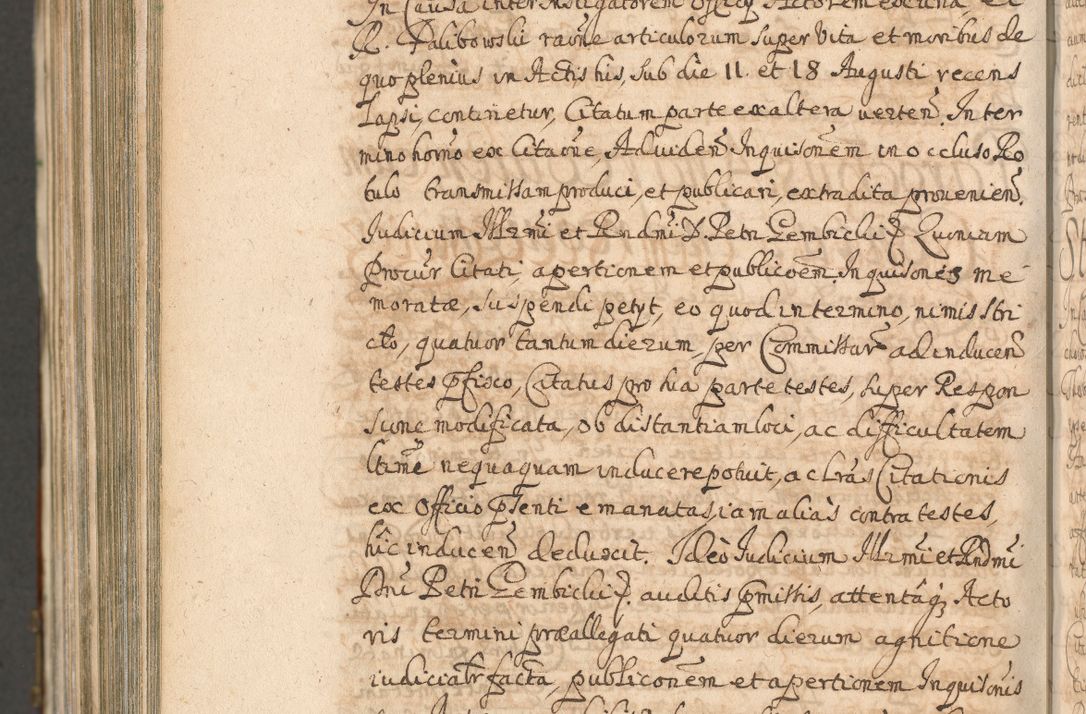 In Causa inter Instigatorem Officij Actorem ex una, et
R. Dalibowski raõne articulorum super Vita et moribus de
quo plenius in Actis his, sub die 11. et 18 Augusti recens
Lapsi, continetur, Citatum parte ex altera verteñ. In ter
mino horño ex Citaõne, Ad videñ Inquisoñem in occluso Ro
tulo transmissam produci, et publicari, ex tradita provenieñ.
Judicium Illrmi et Rndmi D. Petri Gembichi P. Quoniam
Procur Citati, apertionem et publicoẽm Inquisones me
moratæ, suspendi petyt, eo quod in termino, nimis stri
cto, quatuor tantum dierum, per Commissar̃ ad induceñ
testes p̃fixo, Citatus pro hia parte testes, super Respon
sione modificata, ob distantiam loci, ac difficultatem
ltime nequaquam inducere potuit, ac lras Citationis
ex Officio p̃senti emanatas, iam alias contra testes,
hic induceñ deduxit. Ideo Judicium Illrmi et Rndmi
Dni Petri Gembichi P. auditis p̃missis, attentaq; Acto
ris termini præallegati quatuor dierum agnitione
iudicialr facta, publiconem et apertionem Inquisonis